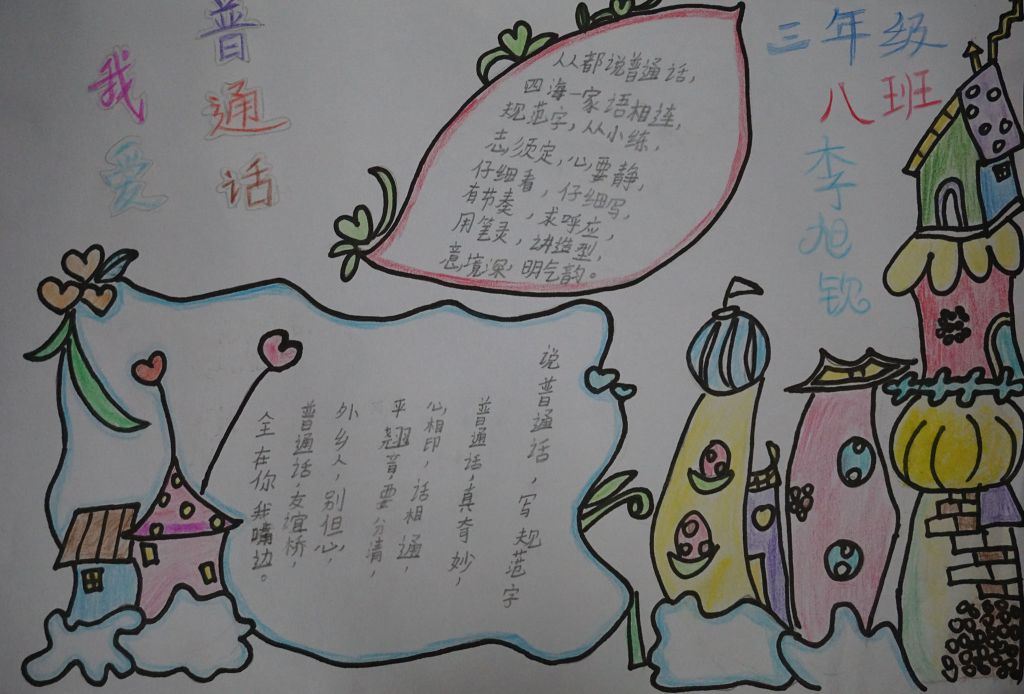 我爱
普通话
三年级
八班
李旭钦
人人都说普通话，
四海一家语相连，
规范字，从小练，
志须定，心要静，
仔细看，仔细写，
有节奏，求呼应，
用笔灵，讲造型，
意境深，明气韵。
说普通话，写规范字
普通话，真奇妙，
心相印，话相通，
平翘音，要分清，
外乡人，别但心，
普通话，友谊桥，
全在你我嘴边。